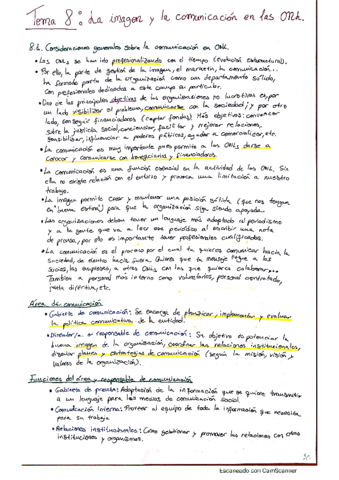 Tema 8: La imagen y la comunicación en las ONL.
8.1. Consideraciones generales sobre la comunicación en ONL.
• Las ONL se han ido profesionalizando con el tiempo (evolución estructural).
• Por ello, la parte de gestión de la imagen, el marketing, la comunicación...
ha formado parte de la organización como un departamento sólido,
con profesionales dedicados a este campo en particular.
• Uno de los principales objetivos de las organizaciones no lucrativas es, por
un lado visibilizar el problema, comunicarse con la sociedad; y por otro
lado, conseguir financiadores (captar fondos). Más objetivos: convencer
sobre la justicia social, concienciar, facilitar y mejorar relaciones,
sensibilizar, influenciar a poderes públicos, ayudar a comercializar, etc.
• La comunicación es muy importante pues permite a las ONLs darse a
conocer y comunicarse con beneficiarios y financiadores.
• La comunicación es una función esencial en la actividad de las ONL. Sin
ella no existe relación con el entorno y provoca una limitación a nuestro
trabajo.
• La imagen permite crear y mantener una posición sólida (que nos tengan
en buena estima) para que la organización siga siendo apoyada.
• Las organizaciones deben tener un lenguaje más adaptado al periodismo
y a la gente que va a leer ese periódico al escribir una nota
de prensa, por ello es importante tener profesionales cualificados.
• La comunicación es el proceso por el cual tú quieres comunicar hacia la
sociedad, de dentro hacia fuera. Quieres que tu mensaje llegue a los
socios, las empresas, a otras ONLs con las que quieras colaborar...
También a personal más interno como voluntarios, personal contratado,
junta directiva, etc.
Área de comunicación
• Gabinete de comunicación: Se encarga de planificar, implementar y evaluar
la política comunicativa de la entidad.
• Director/a o responsable de comunicación: Su objetivo es potenciar la
buena imagen de la organización, coordinar las relaciones institucionales,
diseñar planes y estrategias de comunicación (según la misión, visión y
valores de la organización).
Funciones del área y responsable de comunicación
• Gabinete de prensa: Adaptación de la información que se quiere transmitir
a un lenguaje para los medios de comunicación social.
• Comunicación interna: Proveer al equipo de toda la información que necesita
para su trabajo
• Relaciones institucionales: Cómo gestionar y promover las relaciones con otras
instituciones y organismos.
Escaneado con CamScanner